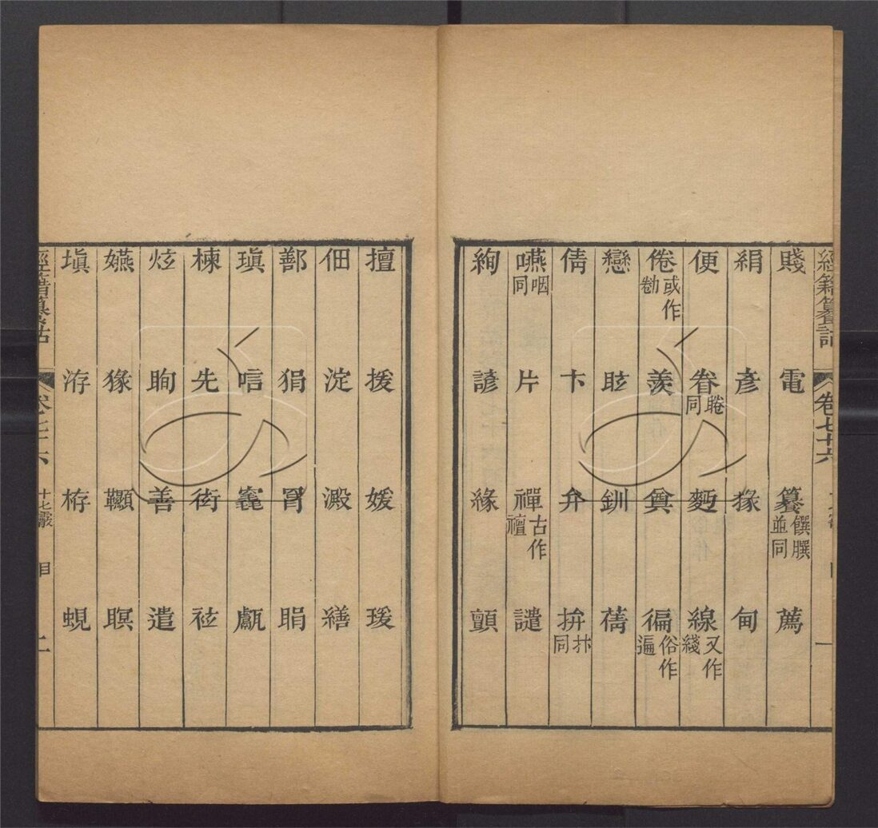 經籍籑詁 卷七十六 一
賤 電 籑饌膳並同 薦
絹 彥 掾 甸
便 眷睠同 麪 線又作綫
倦或作勌 羨 奠 徧俗作遍
戀 眩 釧 蒨
倩 卞 弁 拚抃同
嚥咽同 片 禪古作襢 譴
絢 諺 緣 顫
擅 援 媛 瑗
佃 淀 澱 繕
鄯 狷 罥 睊
瑱 唁 甗
楝 先 衒 袨
炫 眴 善 遣
嬿 㯞 瞑
塡 洊 栫 蜆
經籍籑詁 卷七十六 十七霰 目 二